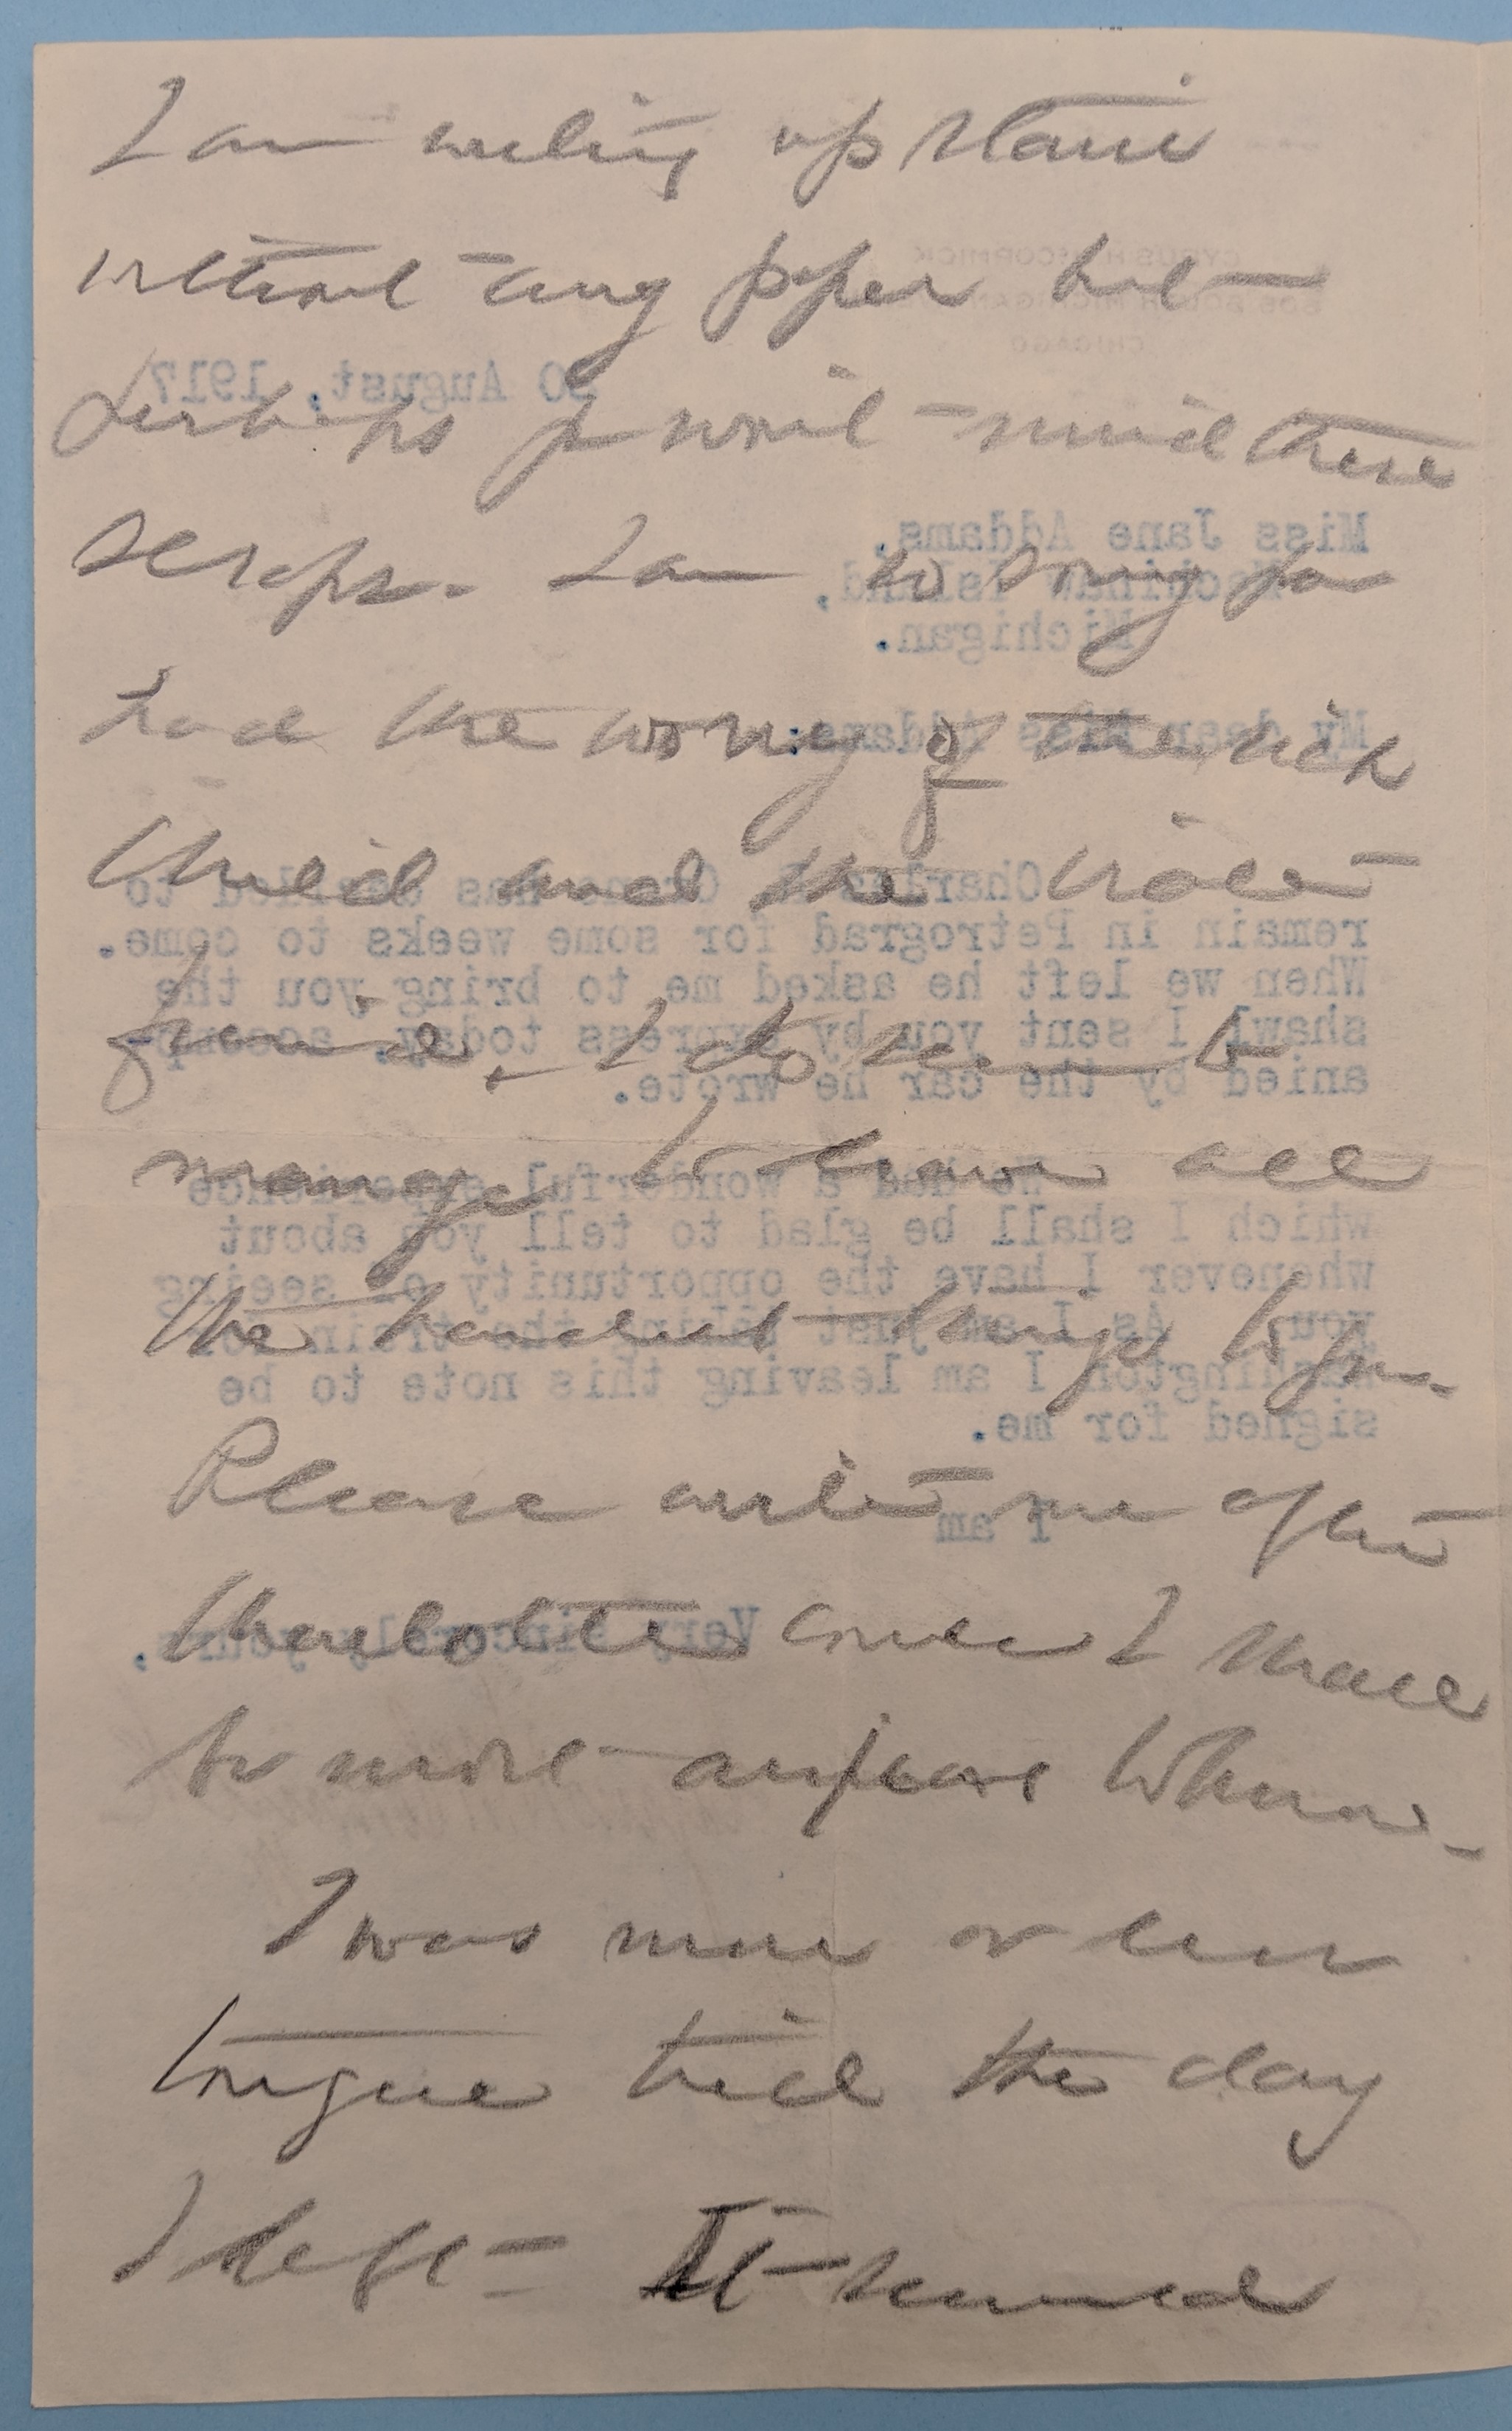 I am writing up stairs
without any paper but
perhaps you won't mind these
scraps. I am so sorry you
had the worry of the sick
child and the
friend. I do seem to
manage to leave all
the hardest things to you.
Please write me after
comes I shall
be most anxious to know.
I was more or less
tongue tied the day
I left - It seemed
CYRUS H. McCORMICK
606 SOUTH MICHIGAN
CHICAGO
August, 1917
Miss Jane Addams,
Mackinaw Island,
Michigan.
My dear Miss Addams:
Charles R. Crane has decided to
remain in Petrograd for some weeks to come.
When we left he asked me to bring you the
shawl I sent you by express today, accomp-
anied by the car he wrote.
We had a wonderful experience
which I shall be glad to tell you about
whenever I have the opportunity of seeing
you. As I am just taking the train for
Washington I am leaving this note to be
signed for me.
I am
Very sincerely yours,